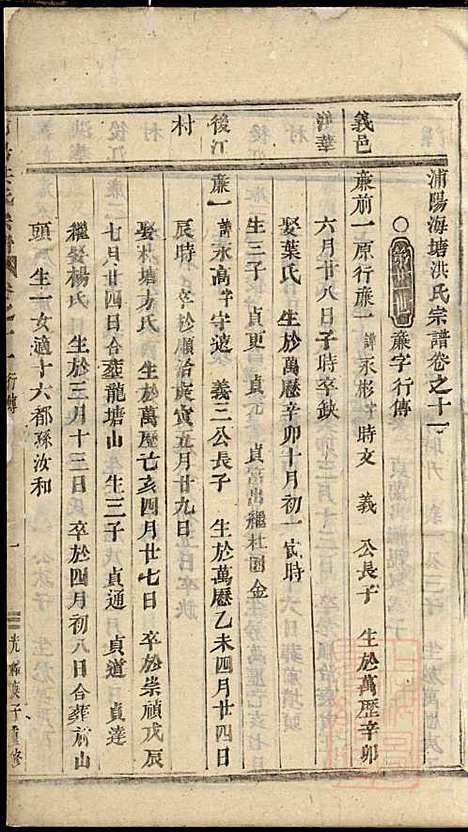 浦陽海塘洪氏宗譜卷之十一
○
亷字行傳
義邑
洪華
亷前一原行亷一 諱永彬字時文 義 公長子 生於萬歷辛卯
六月廿八日子時卒缺
娶葉氏 生於萬歷辛卯十月初一寅時
生三子 貞更 貞元 貞富出繼杜园金
後江
村
亷一 諱永高字守遠 義三公長子 生於萬歷乙未四月廿四日
辰時 卒於順治庚寅五月廿九日
娶杜塘方氏 生於萬歷己亥四月廿七日 卒於崇禎戊辰
七月廿四日合塟龍塘山 生三子 貞通 貞道 貞達
繼娶楊氏 生於三月十三日 卒於四月初八日合葬前山
頭 生一女適十六都孫汝和
行傳
一
光緒
子重修